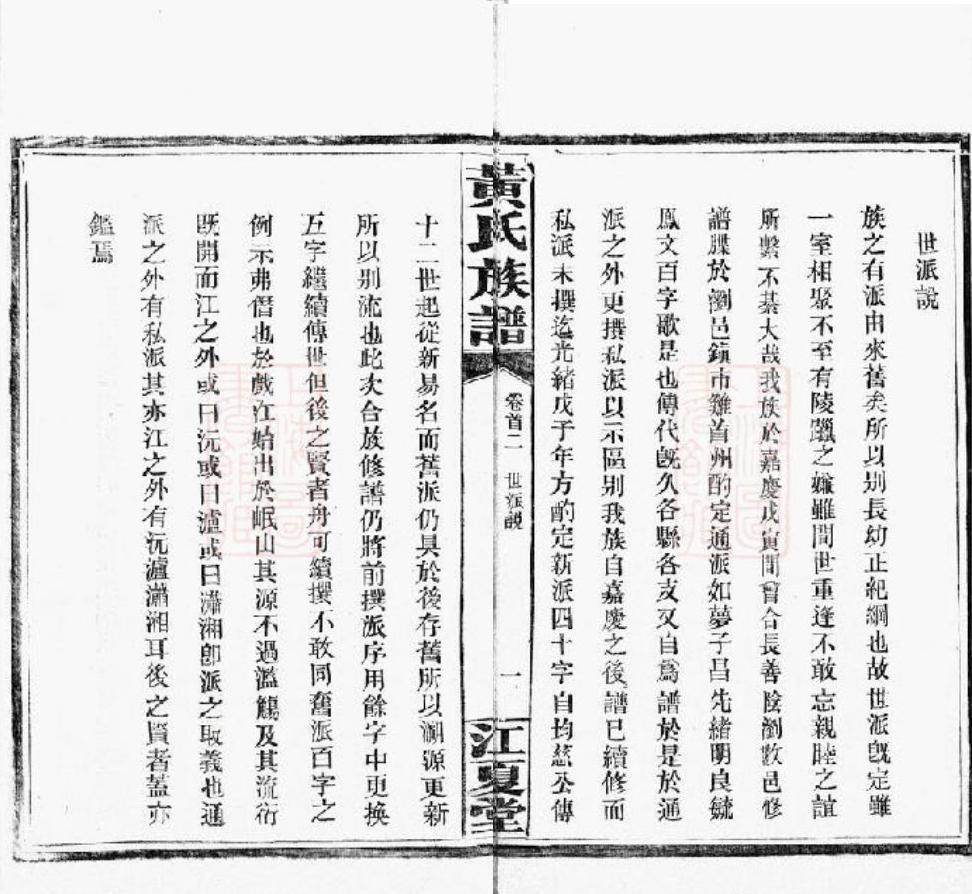 世派說
族之有派由來舊矣所以別長幼正紀綱也故世派旣定雖
一室相聚不至有陵躐之嫌雖間世重逢不敢忘親睦之誼
所繫不綦大哉我族於嘉慶戊寅間曾合長善陰瀏數邑修
譜牒於瀏邑鎮市難首州酌定通派如夢子昌先緒明良毓
鳳文百字歌是也傳代旣久各縣各支又自爲譜於是於通
派之外更撰私派以示區别我族自嘉慶之後譜已續修而
私派未撰迄光緒戊子年方酌定新派四十字自均慈公傳
黃氏族譜
卷首二
世派說
一
江夏堂
十二世起從新易名而舊派仍具於後存舊所以溯源更新
所以别流也此次合族修譜仍將前撰派序用餘字中更換
五字繼續傳世但後之賢者舟可續撰不敢同舊派百字之
例示弗僭也於戲江始出於岷山其源不過濫觴及其流衍
既開而江之外或曰沅或曰瀘或曰瀟湘卽派之取義也通
派之外有私派其亦江之外有沅瀘瀟湘耳後之賢者蓋亦
鑑焉